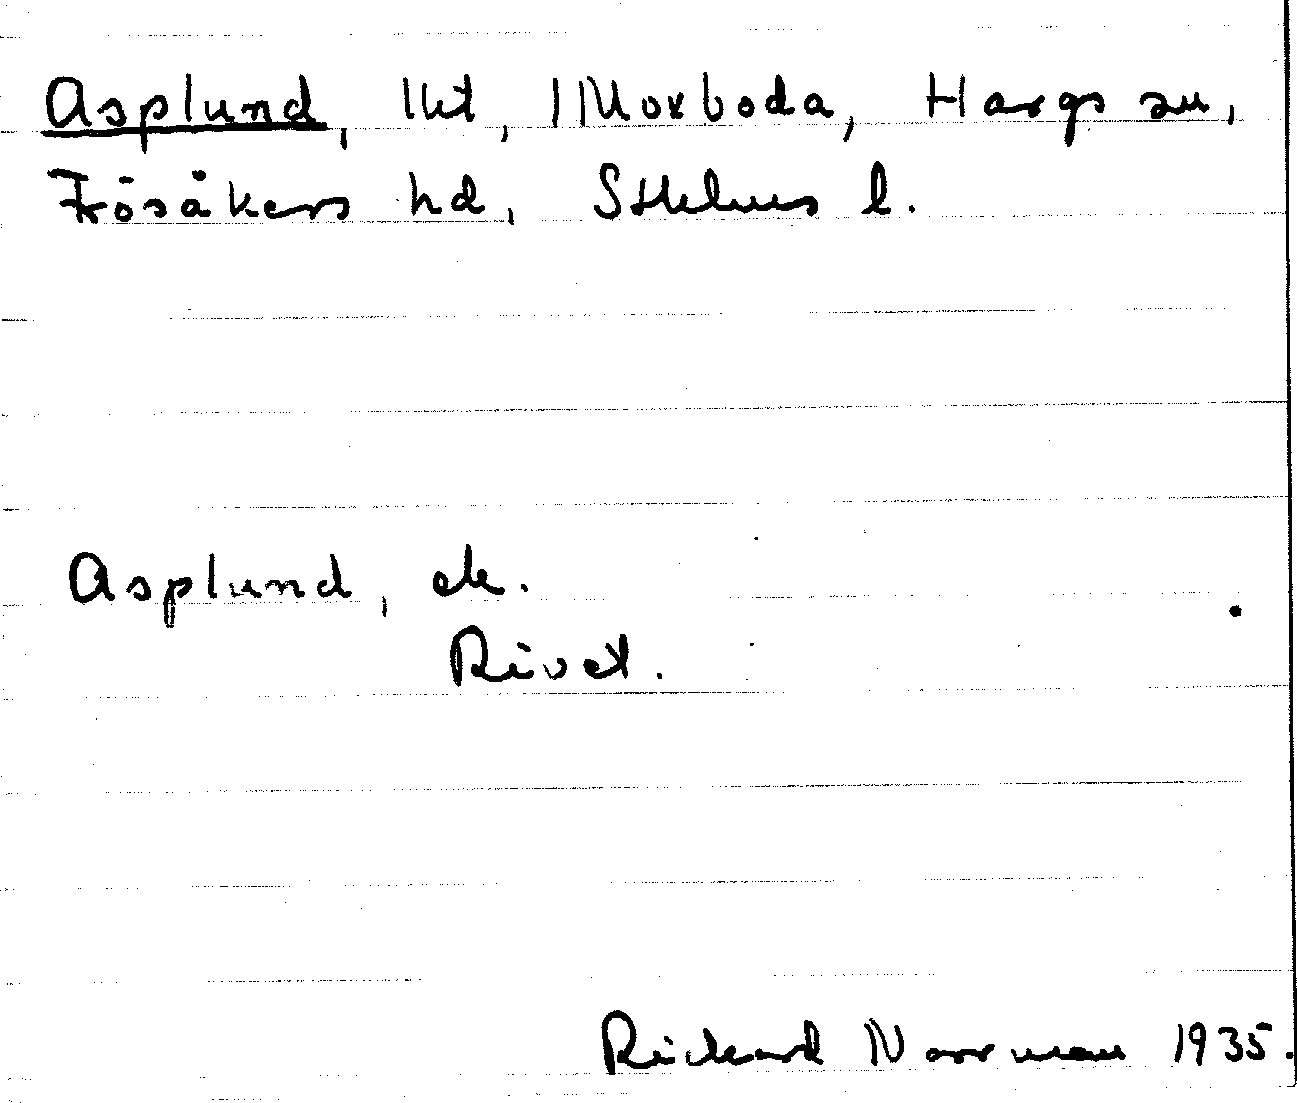 Asplund, lht, 1 Morboda, Hargs sn,
Frösåkers hd, Sthlms l.
Asplund, ek.
Rivet.
Rickard Norrman 1935.